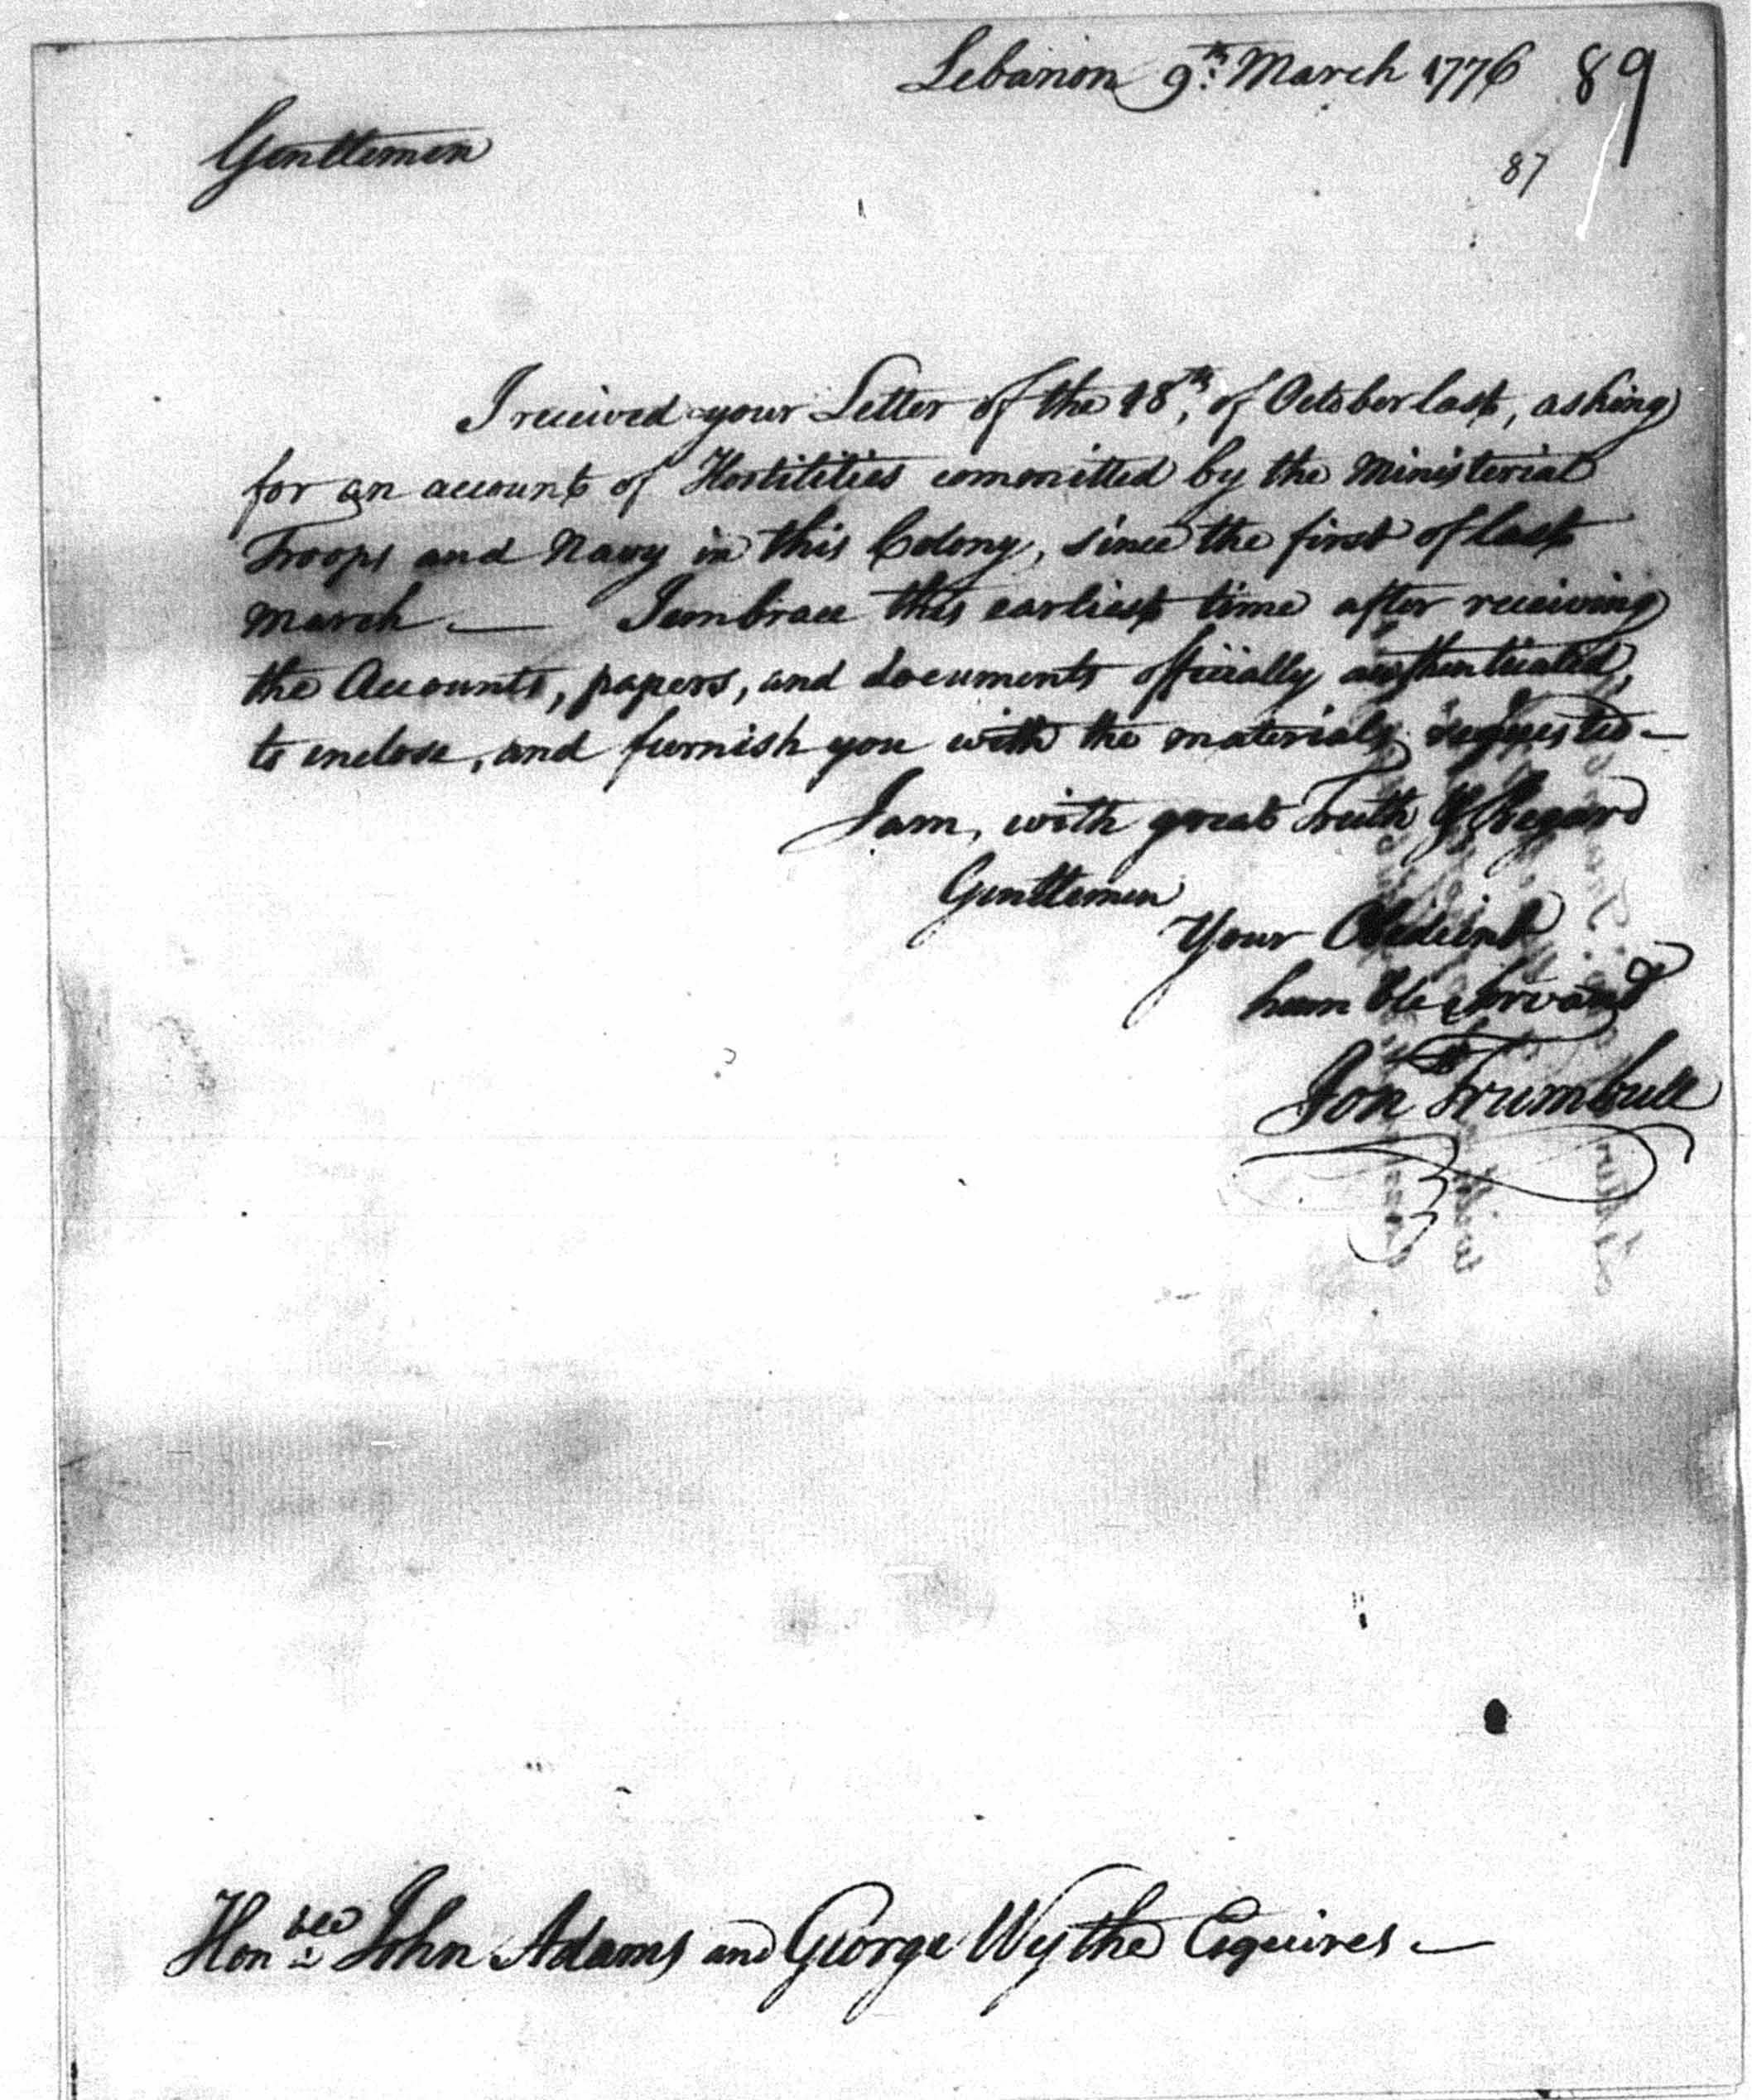 Lebanon 9th. March 1776 89
87
Gentlemen
I received your Letter of the 18th, of October last, asking
for an account of Hostilities committed by the Ministerial
Troops and Navy in this Colony, since the first of last
March — I embrace this earliest time after receiving
the Accounts, papers, and documents officially authenticated,
to inclose, and furnish you with the materials requested —
I am, with great Truth & Regard
Gentlemen
Your Obedient
humble Servant
Jonth Trumbull
Honble John Adams and George Wythe Esquires —